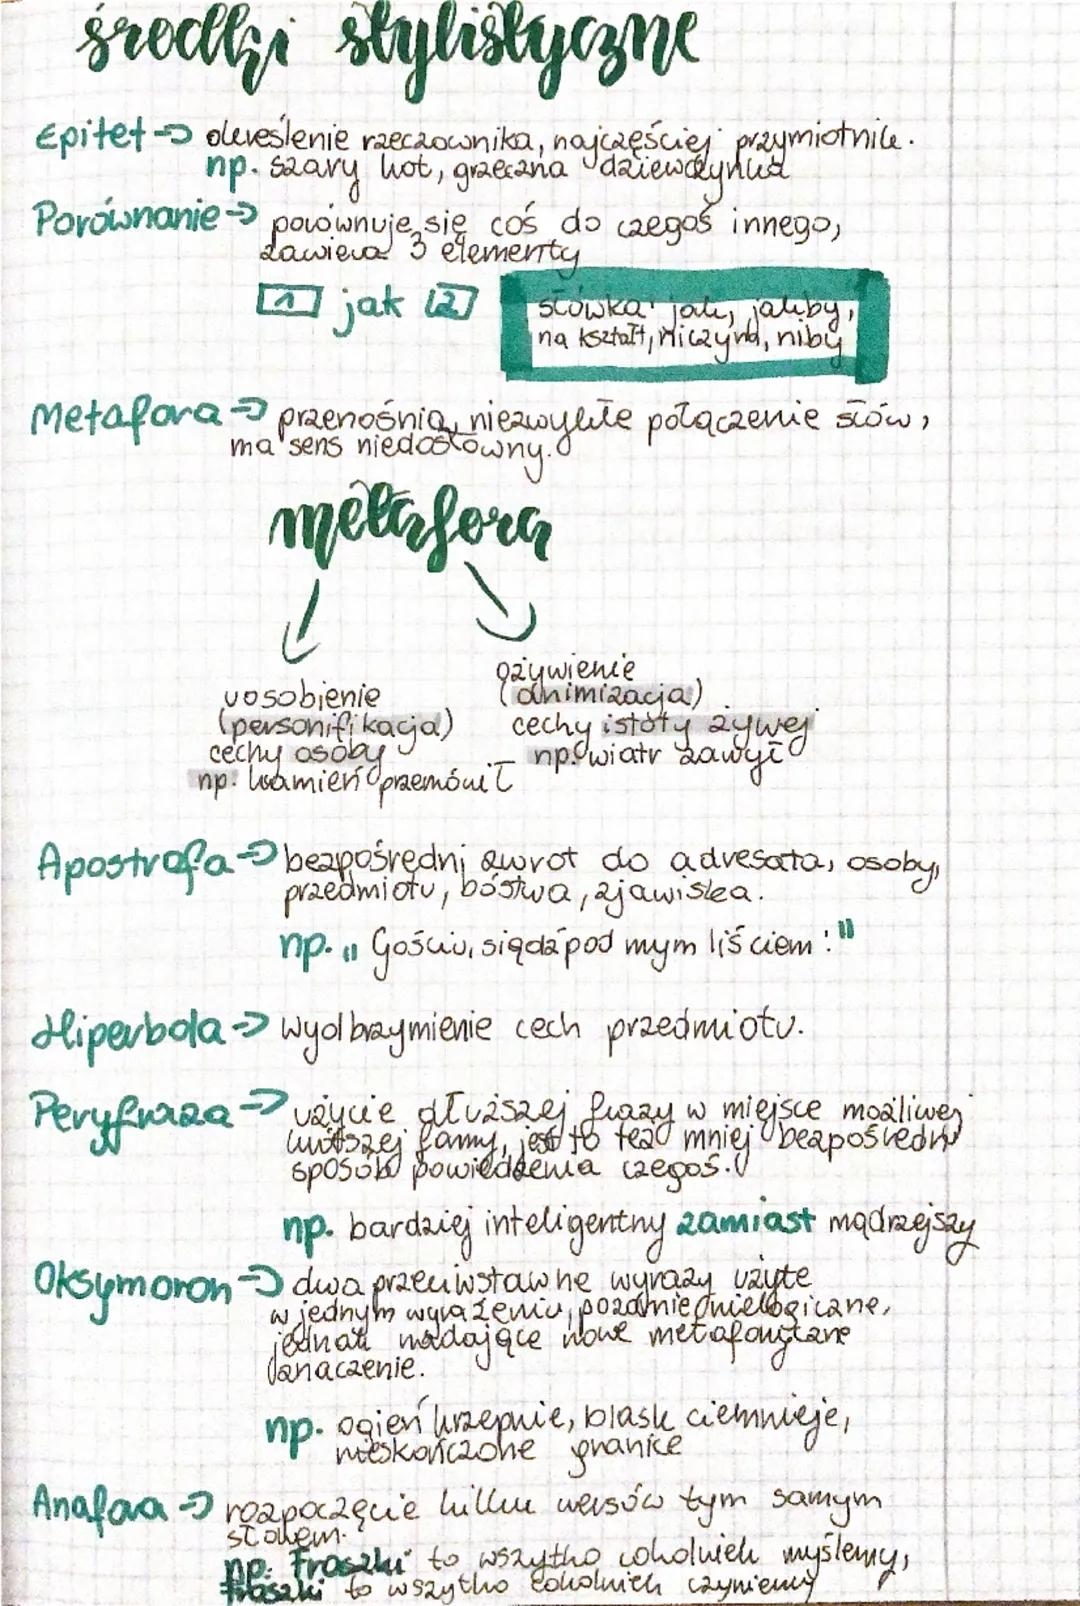 środki stylistyczne
Epitet → określenie rzeczownika, najczęściej przymiotnik.
np. szary kot, grzeczna dziewczynka
Porównanie → porównuje się coś do czegoś innego,
zawiera 3 elementy
1 jak 2
słówka: jak, jakby,
na kształt, niczym, niby
Metafora → przenośnia, niezwykłe połączenie słów,
ma sens niedosłowny.
metafora
ożywienie
uosobienie
(animizacja)
(personifikacja)
cechy istoty żywej
cechy osoby
np. wiatr zawył
np. kamień przemówił
Apostrofa → bezpośredni zwrot do adresata, osoby,
przedmiotu, bóstwa, zjawiska.
np. „Gościu, siądź pod mym liściem!"
Hiperbola → wyolbrzymienie cech przedmiotu.
Peryfraza → użycie dłuższej frazy w miejsce możliwej
krótszej formy, jest to też mniej bezpośredni
sposób powiedzenia czegoś.
np. bardziej inteligentny zamiast mądrzejszy
Oksymoron → dwa przeciwstawne wyrazy użyte
w jednym wyrażeniu, pozornie nielogiczne,
jednak nadające nowe metaforyczne
znaczenie.
np. ogień krzepnie, blask ciemnieje,
nieskończone granice
Anafora → rozpoczęcie kilku wersów tym samym
słowem.
np. Fraszki to wszytko cokolwiek myślemy,
Fraszki to wszytko cokolwiek czyniemy